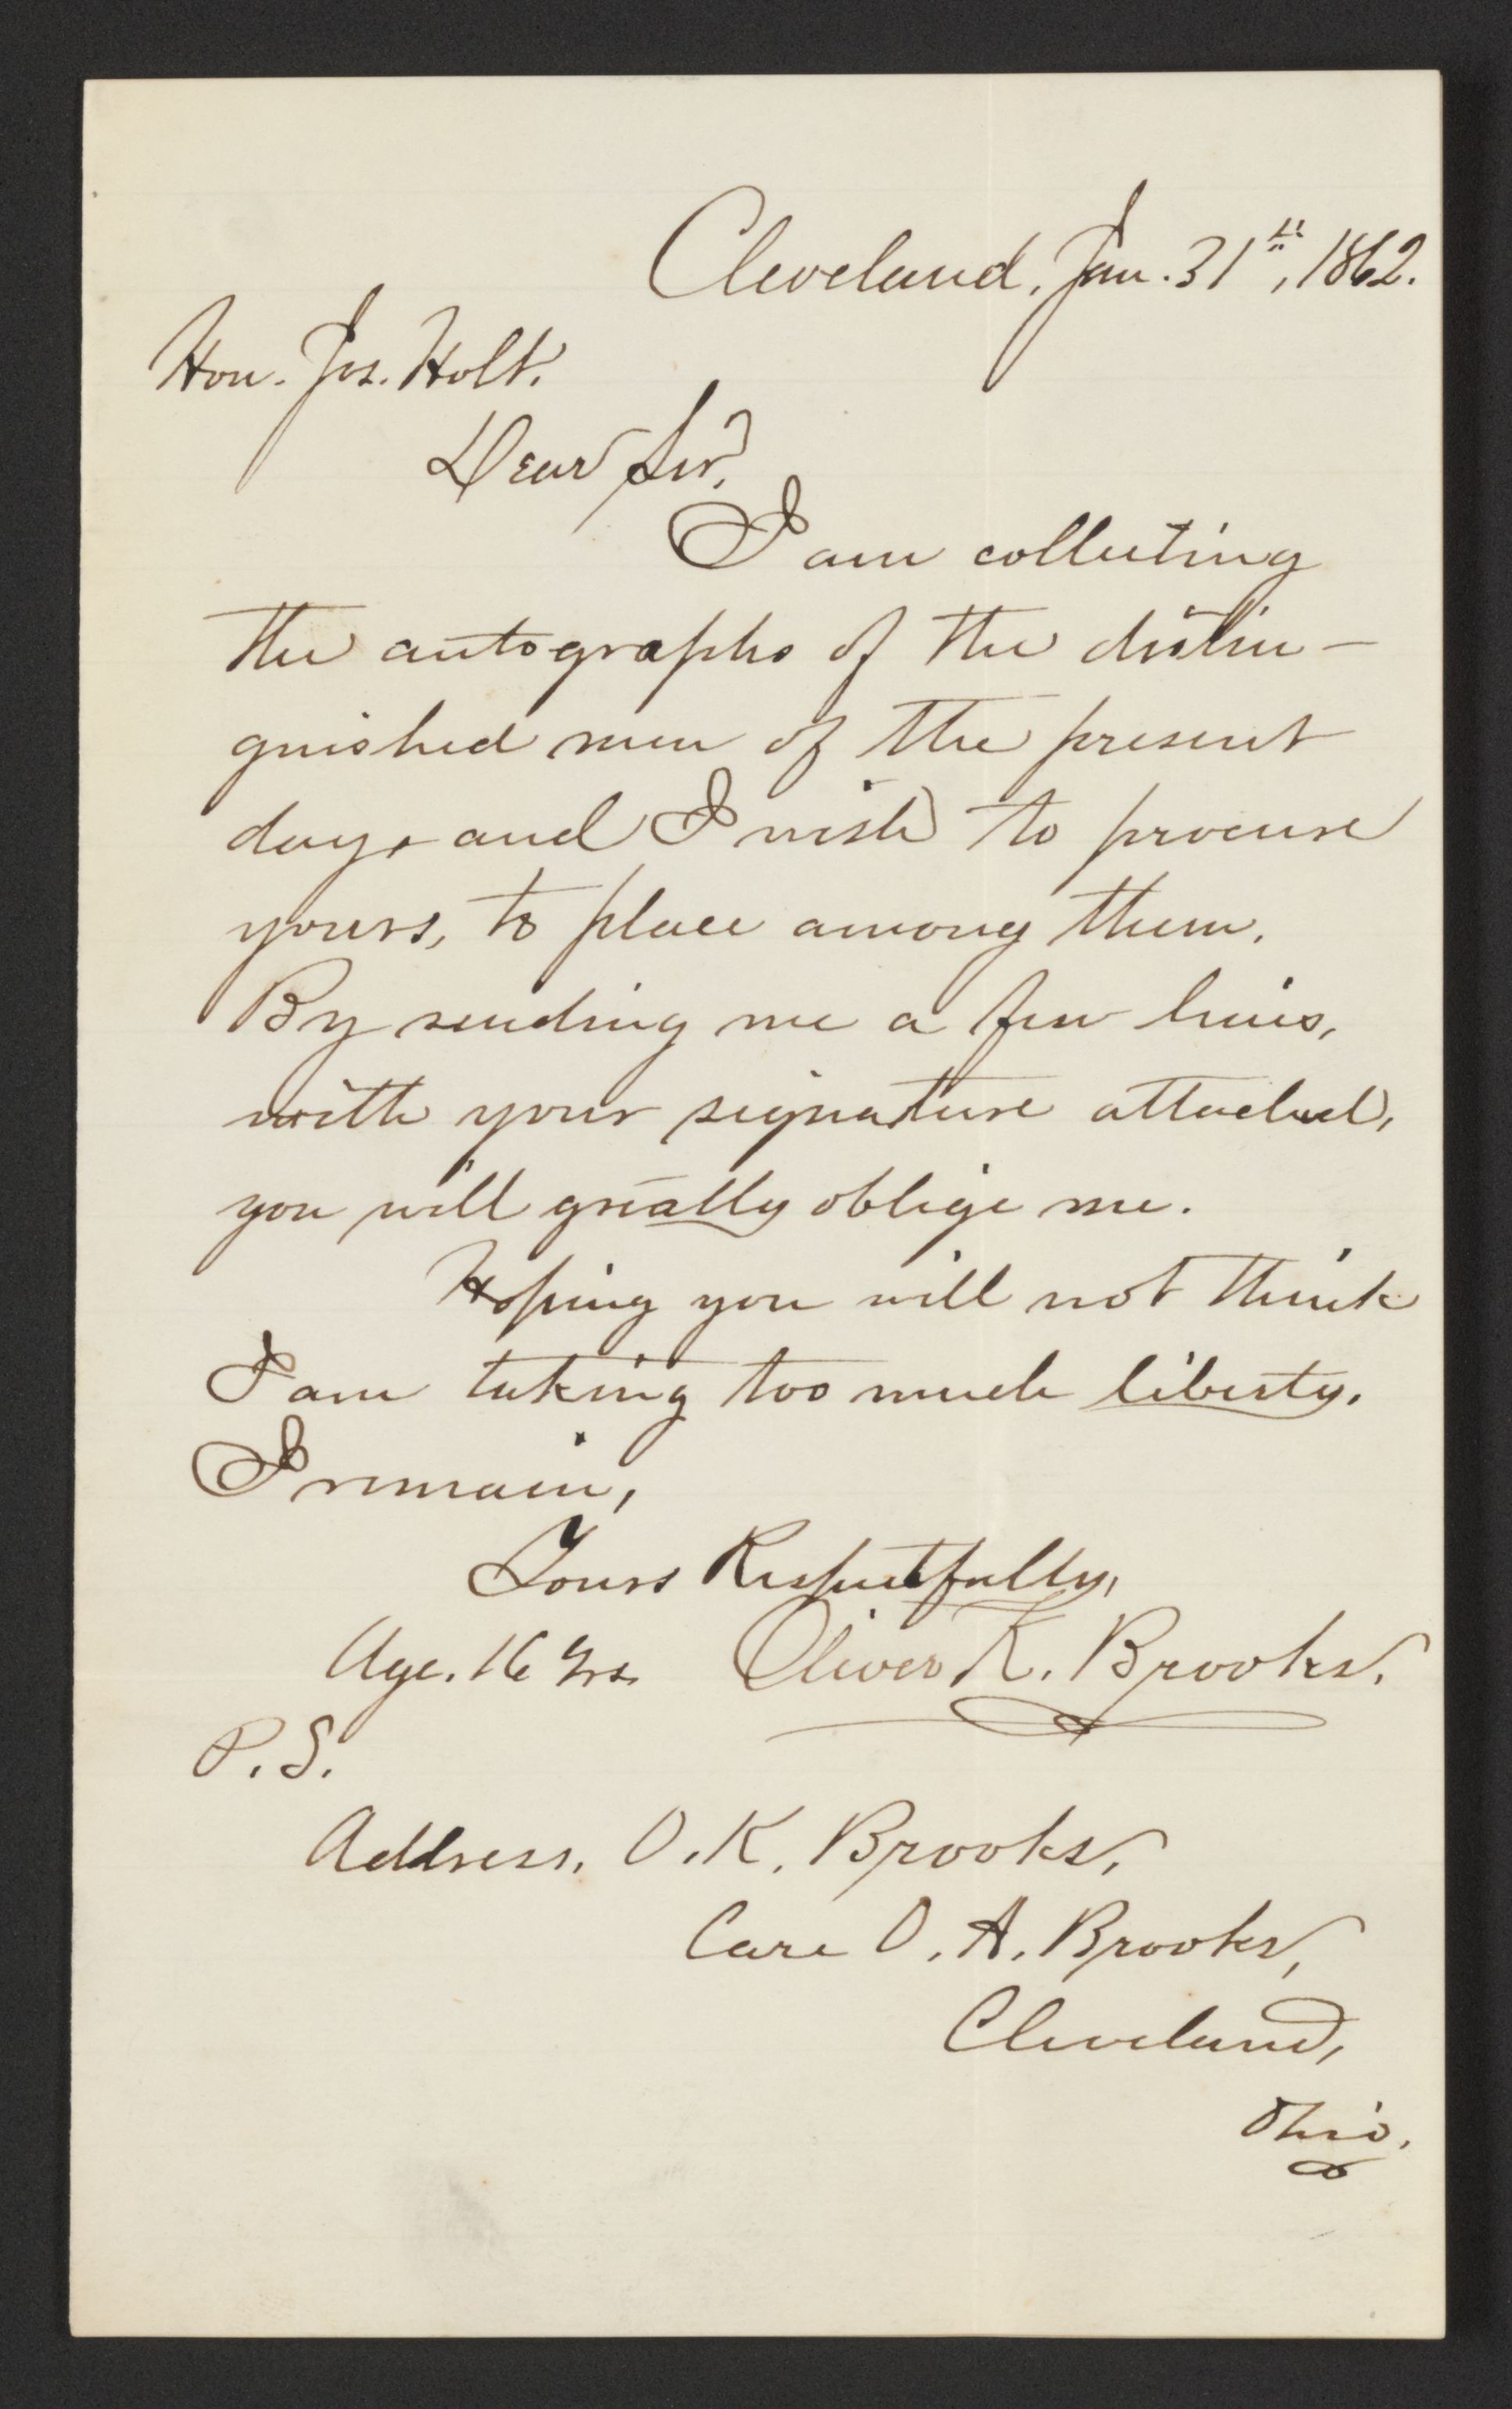 Cleveland, Jan. 31st, 1862.
Hon. Jos. Holt.
Dear Sir,
I am collecting
the autographs of the distin-
guished men of the present
day, and I wish to procure
yours, to place among them.
By sending me a few lines,
with your signature attached,
you will greatly oblige me.
Hoping you will not think
I am taking too much liberty.
I remain,
Yours Respectfully,
Age. 16 Yrs. Oliver K. Brooks.
P.S.
Address, O. K. Brooks,
Care O. A. Brooks,
Cleveland,
Ohio.